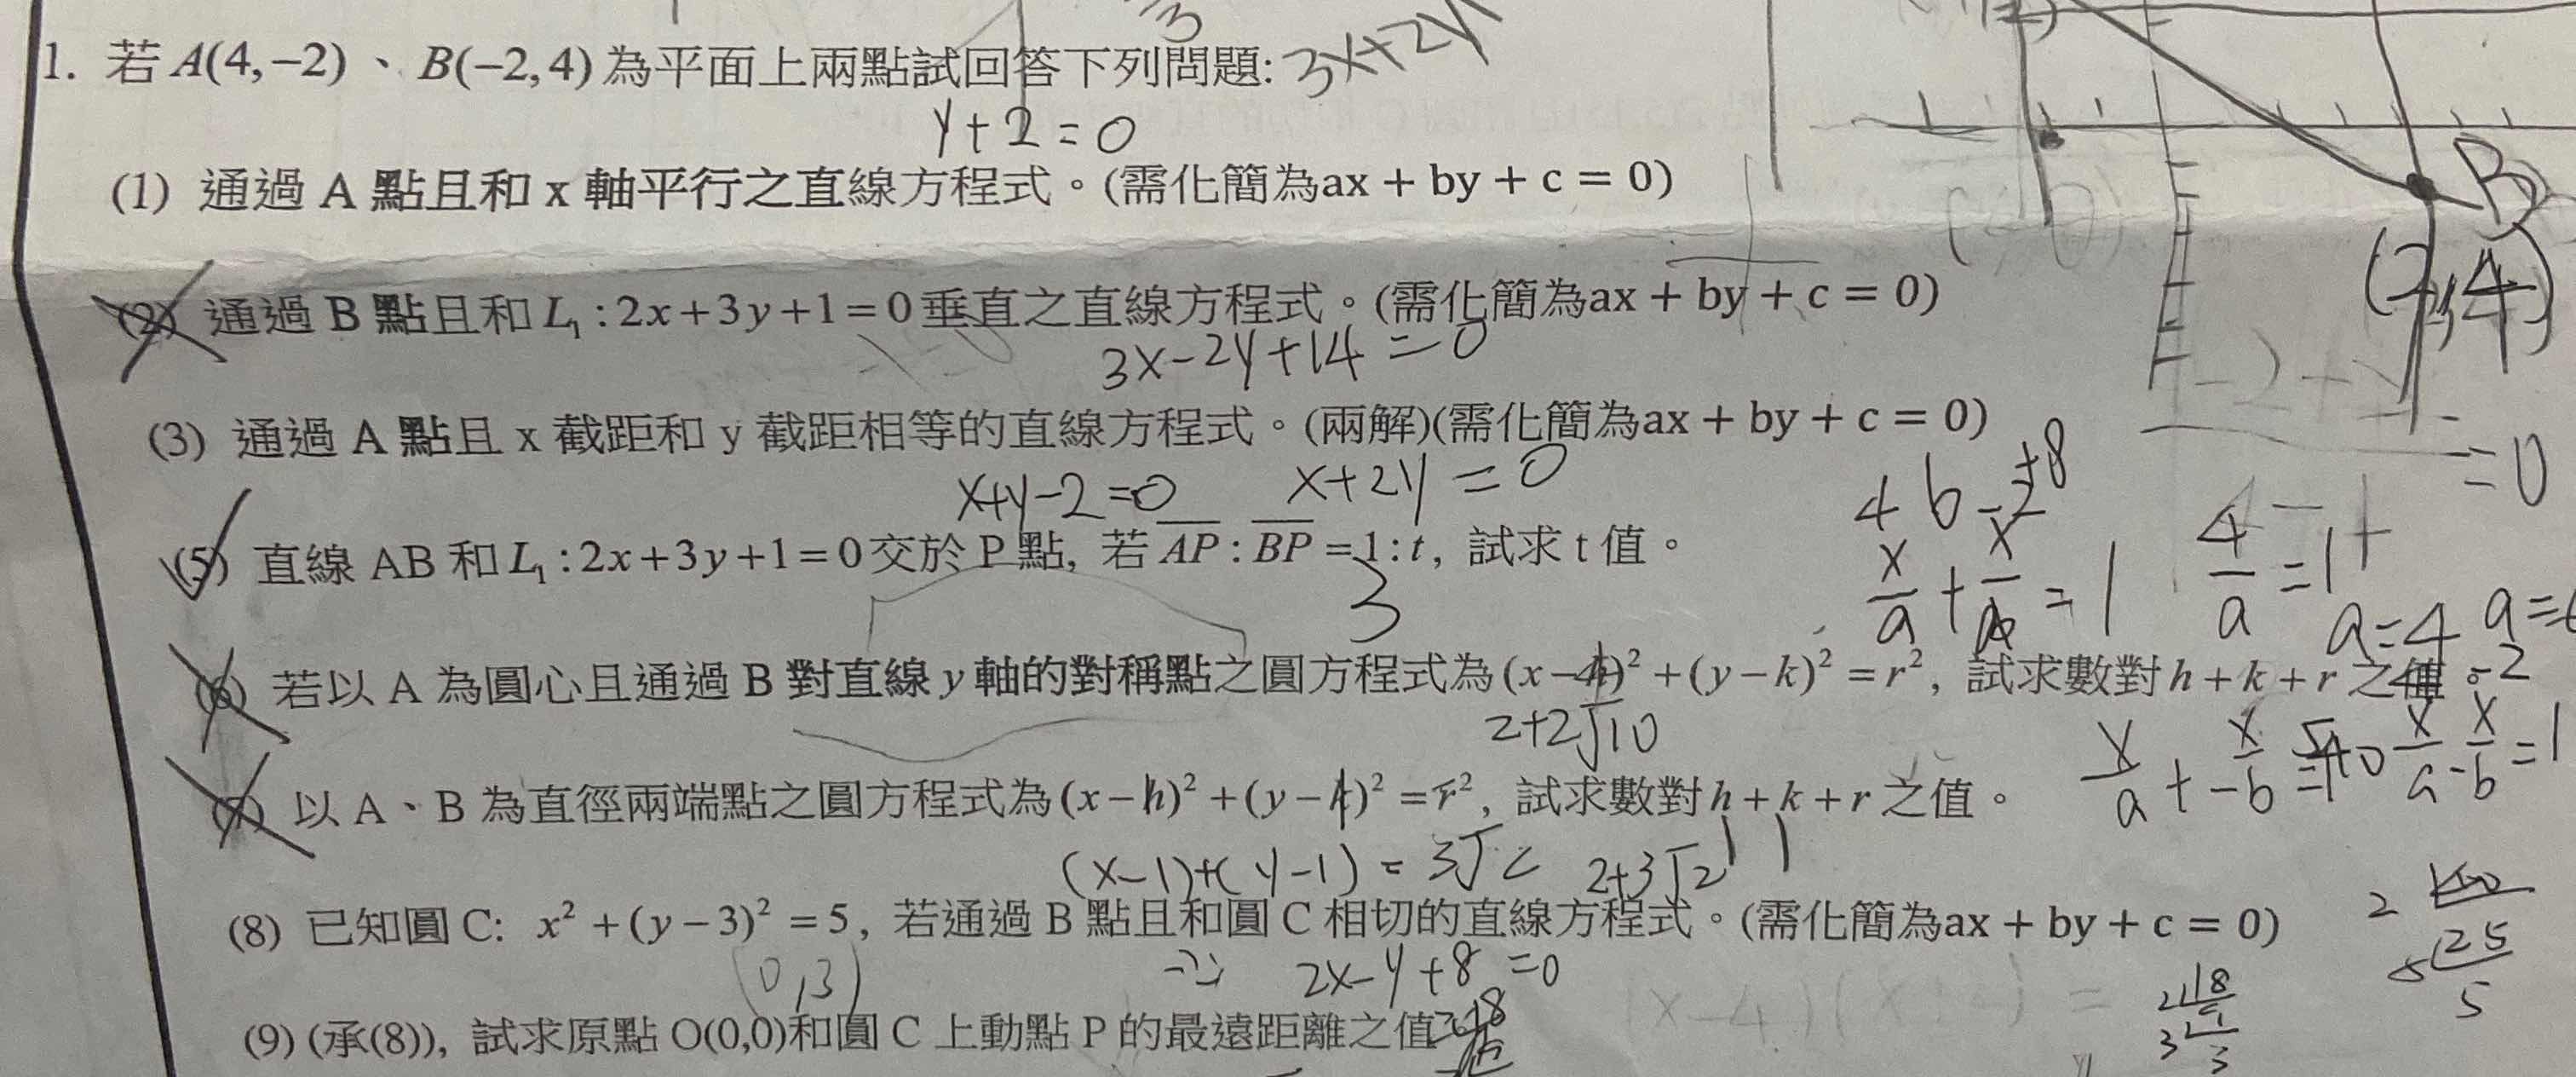 3
1. 若 A(4,−2)、B(−2,4) 為平面上兩點試回答下列問題: 3x+2y
y+2=0
(1) 通過 A 點且和 x 軸平行之直線方程式。(需化簡為ax + by + c = 0)
B
(2,4)
(2) 通過 B 點且和 L₁:2x+3y+1=0垂直之直線方程式。(需化簡為ax + by + c = 0)
3x-2y+14=0
(3) 通過 A 點且 x 截距和 y 截距相等的直線方程式。(兩解)(需化簡為ax + by + c = 0)
=0
x+y-2=0 x+2y=0
(5) 直線 AB 和 L₁:2x+3y+1=0交於 P 點, 若 AP : BP = 1:t, 試求 t 值。
3
4/a=1
a=4
(6) 若以 A 為圓心且通過 B 對直線 y 軸的對稱點之圓方程式為 (x−h)² +(y−k)² = r², 試求數對 h + k + r 之值。
2+2√10
(7) 以 A、B 為直徑兩端點之圓方程式為 (x−h)² +(y−k)² = r², 試求數對 h + k + r 之值。
x/a - x/b = 1
(x-1)+(y-1) = 3√2 2+3√2 1 1
(8) 已知圓 C: x² +(y−3)² = 5, 若通過 B 點且和圓 C 相切的直線方程式。(需化簡為ax + by + c = 0)
(0,3) 2x-y+8=0
5 25
5
(9) (承(8)), 試求原點 O(0,0)和圓 C 上動點 P 的最遠距離之值